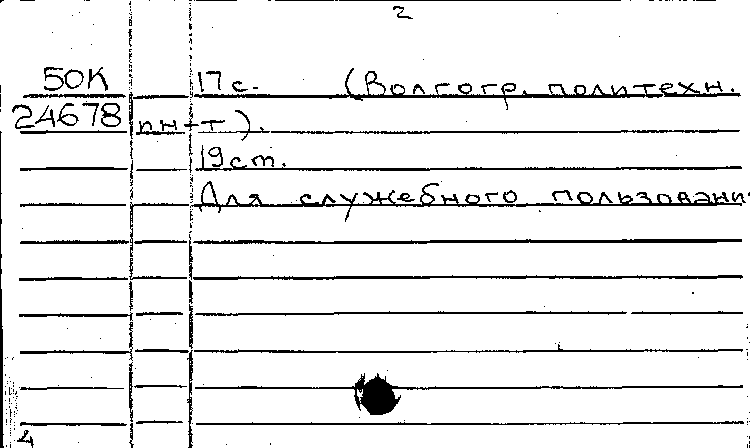 2
50К 17с. (Волгогр. политехн.
24678 ин-т).
19ст.
Для служебного пользовани
4